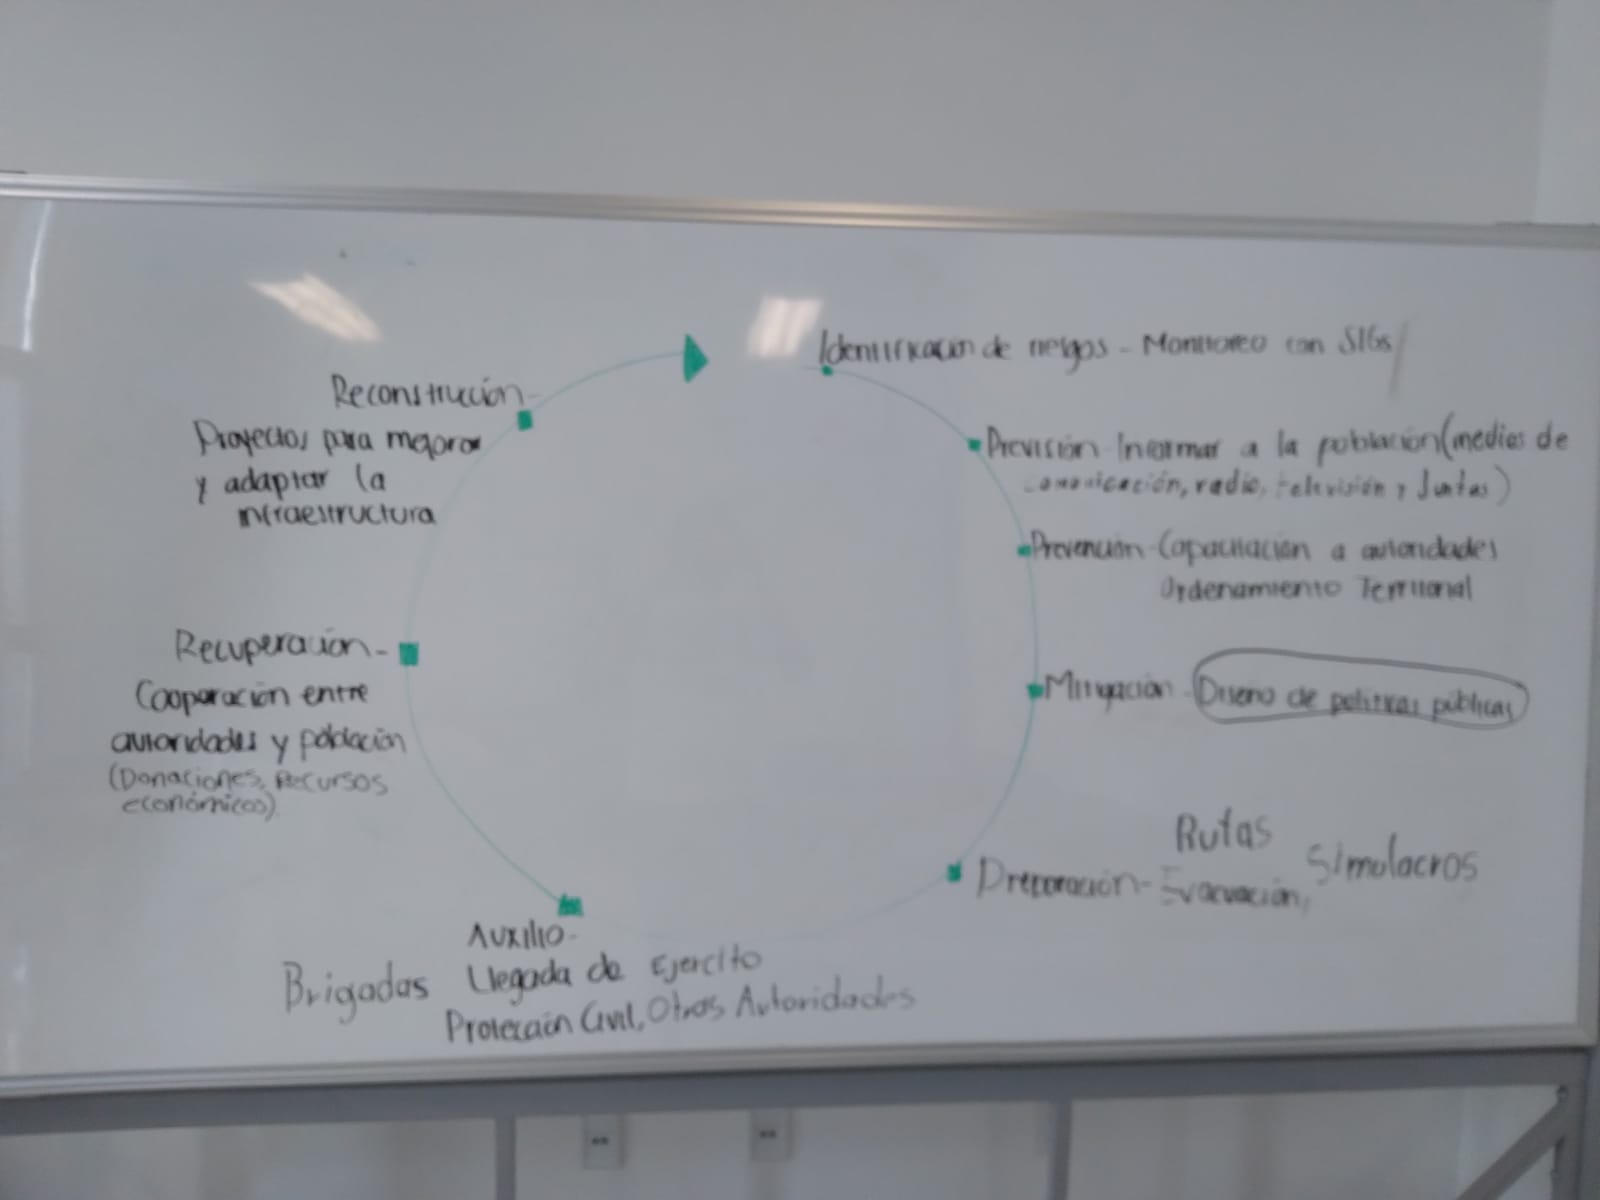 Identificación de riesgos - Monitoreo con SIGs
Previsión - Informar a la población (medios de
comunicación, radio, televisión y Juntas)
Prevención - Capacitación a autoridades
Ordenamiento Territorial
Mitigación - Diseño de políticas públicas
Rutas
Preparación - Evacuación, Simulacros
Auxilio -
Brigadas Llegada de Ejercito
Protección Civil, Otras Autoridades
Recuperación -
Cooperación entre
autoridades y población
(Donaciones, Recursos
económicos)
Reconstrucción -
Proyectos para mejorar
y adaptar la
infraestructura